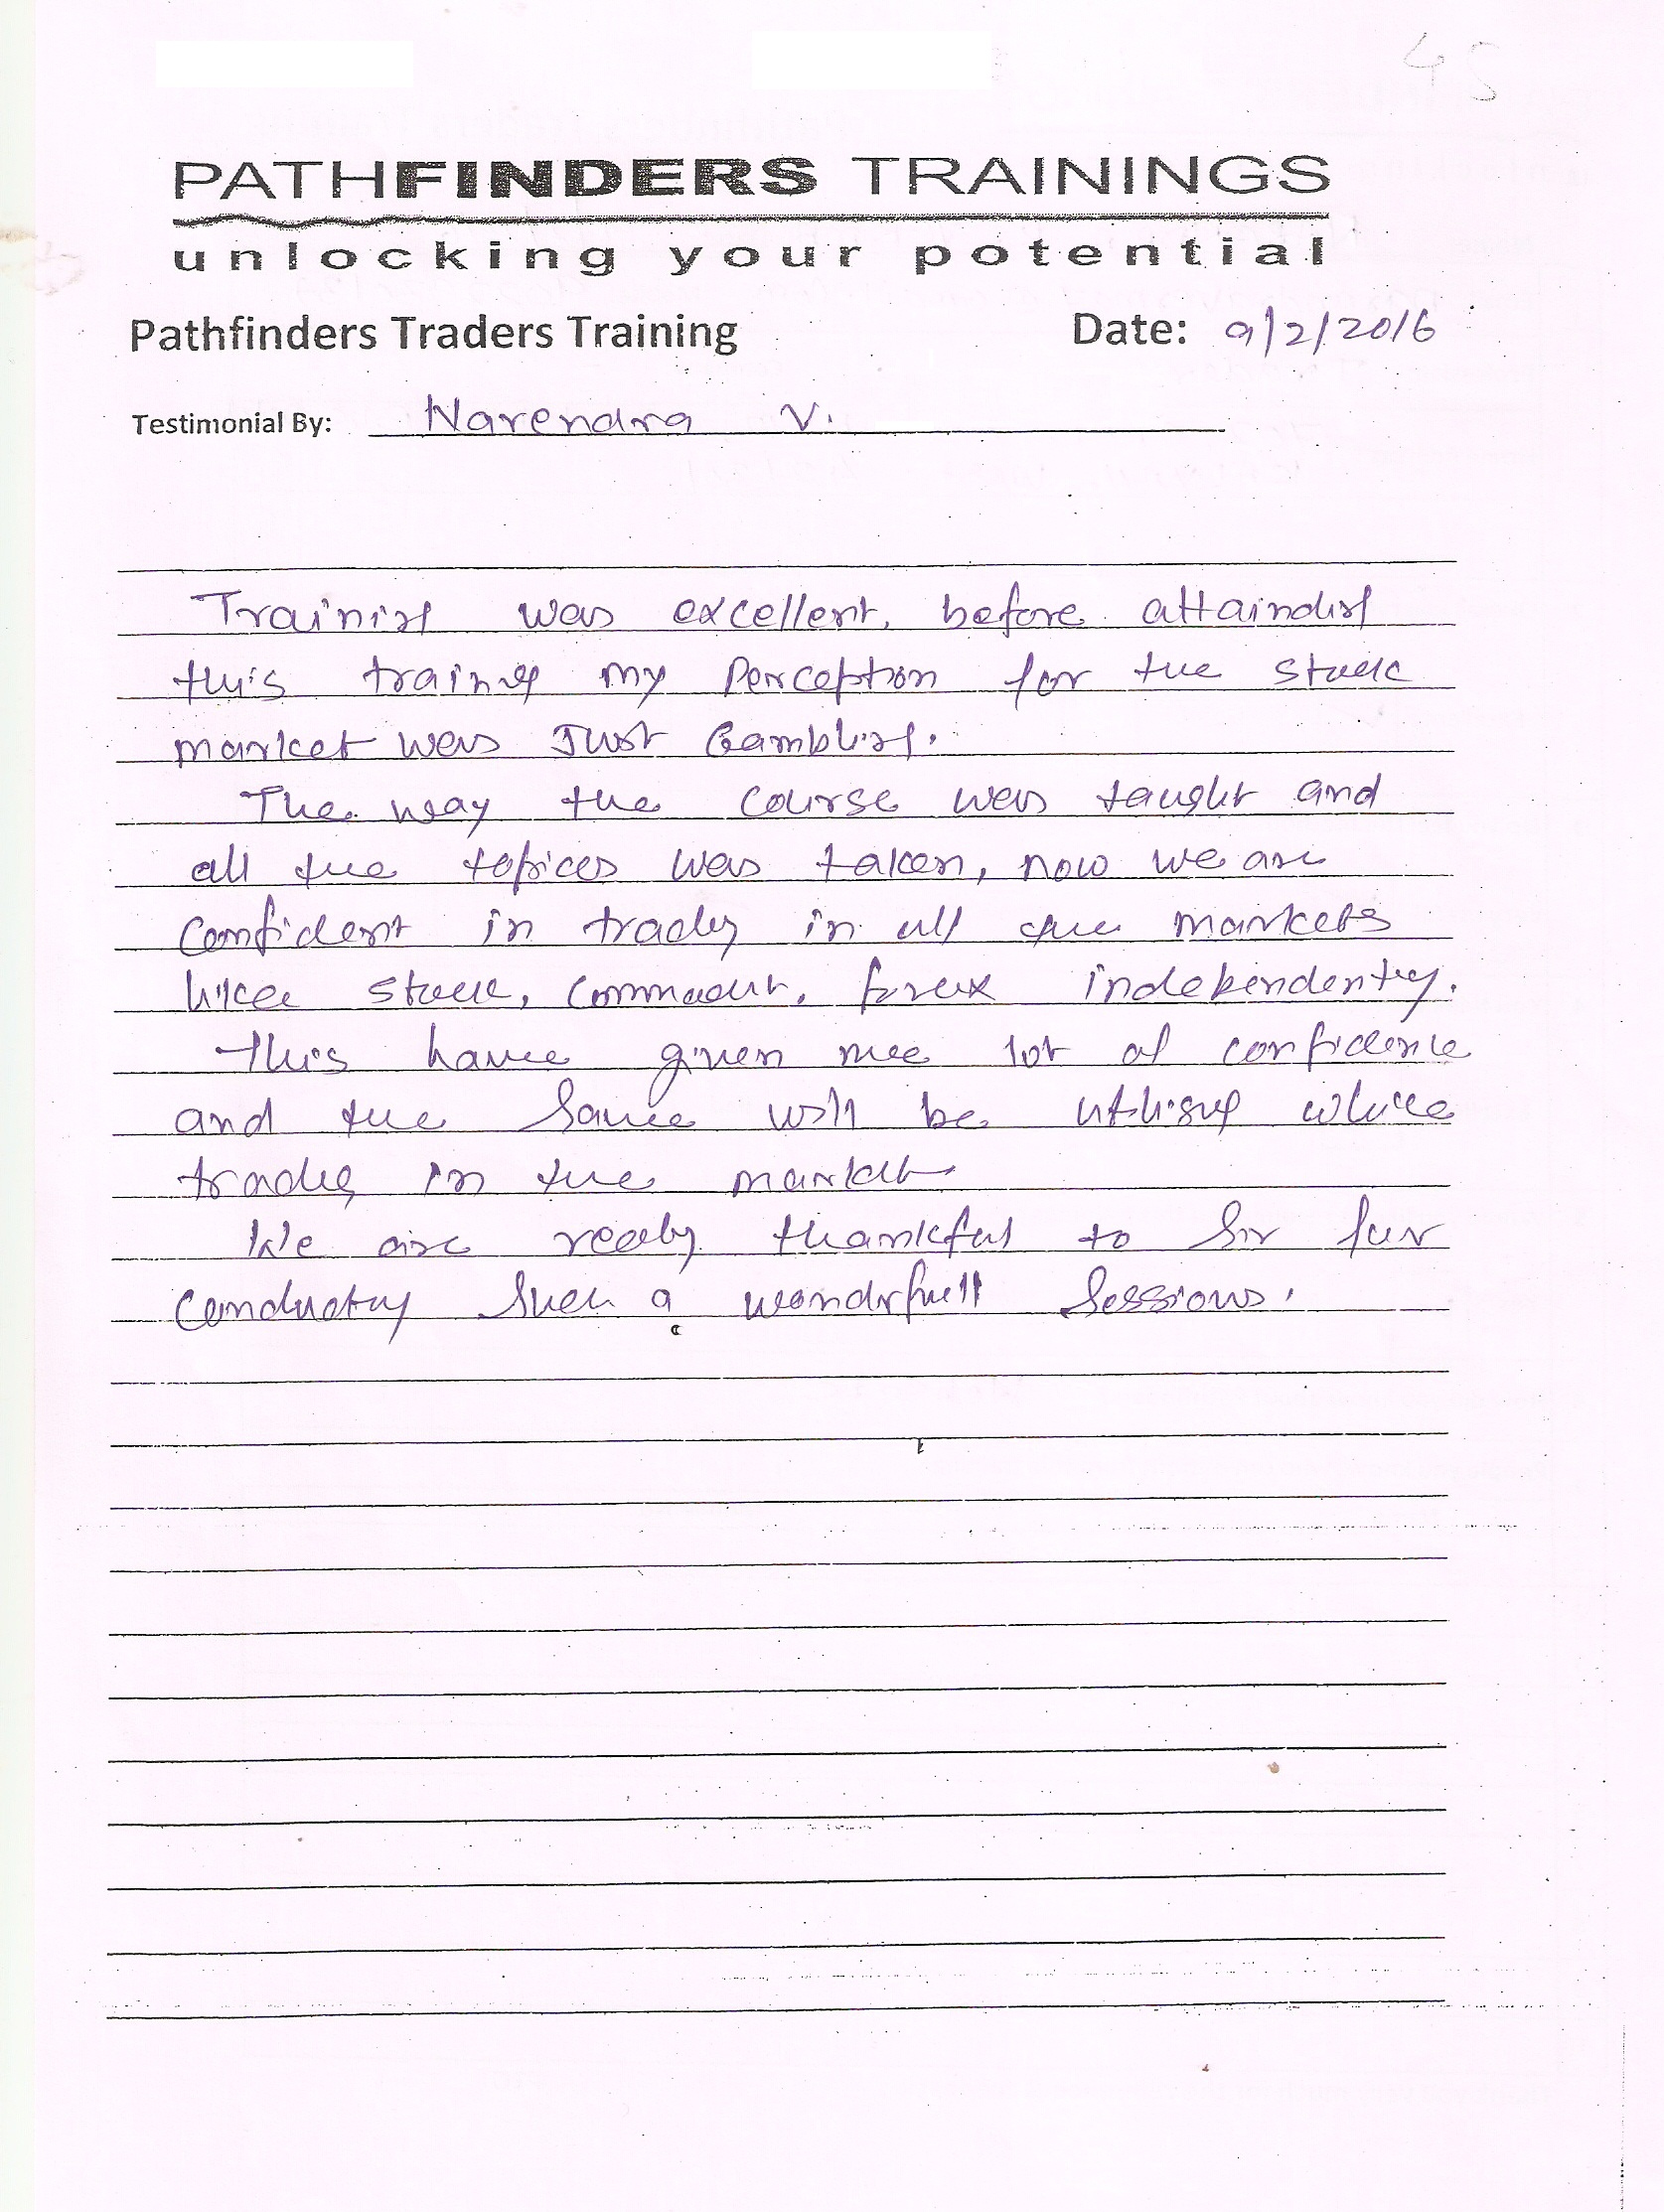 45
PATHFINDERS TRAININGS
unlocking your potential
Pathfinders Traders Training Date: 9/2/2016
Testimonial By: Narendra V.
Training was excellent, before attainding
this training my Perception for the stock
market was Just Gambling.
The way the course was taught and
all the topices was taken, now we are
confident in trading in all the markets
like stock, commodity, forex independently.
This have given me lot of confidence
and the same will be utilising while
trading in the market
We are really thankful to Sir for
conducting such a wonderfull sessions.